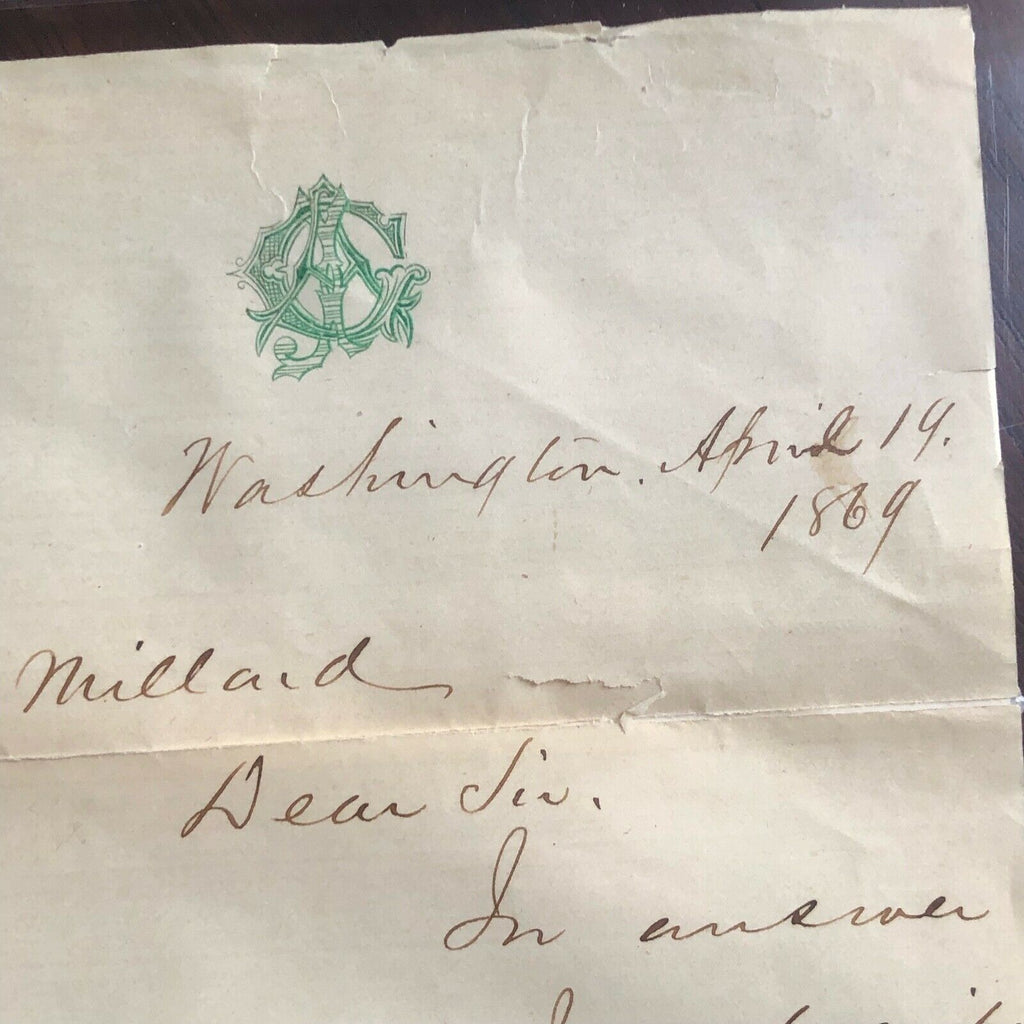 Washington. April 19.
1869
Millard
Dear Sir.
In answer